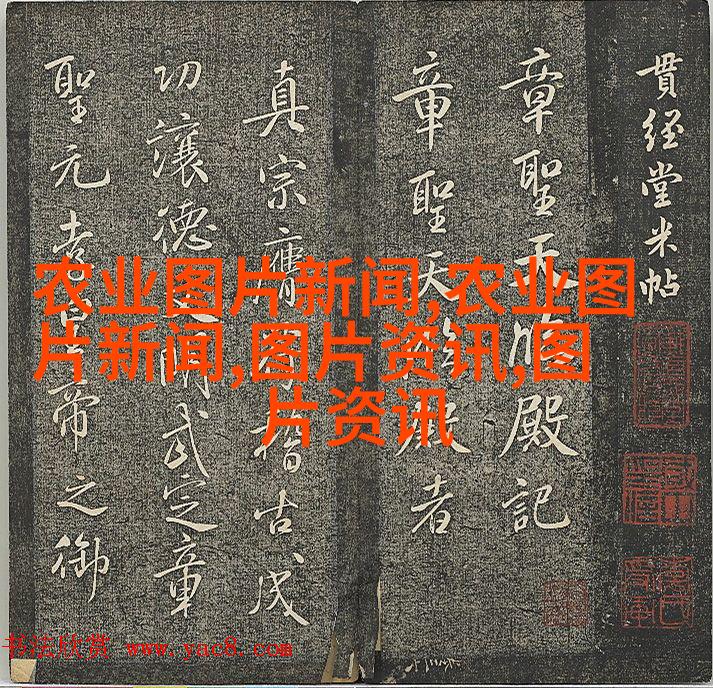 貫経堂米帖
章聖天殿記
章聖天殿者
真宗膺稽古成
功讓德武定章
聖元帝之御
农业图片新闻,农业图
片新闻,图片资讯,图
片资讯
书法欣赏 www.yac8.com